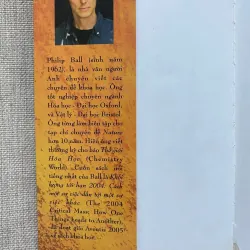 Philip Ball (sinh năm
1962), là nhà văn người
Anh chuyên viết các
chuyên đề khoa học. Ông
tốt nghiệp chuyên ngành
Hóa học - Đại học Oxford,
và Vật lý - Đại học Bristol.
Ông từng làm biên tập cho
tạp chí chuyên đề Nature
hơn 10 năm. Hiện ông viết
thường kỳ cho báo Thế giới
Hóa Học (Chemistry
World). Cuốn sách nổi
tiếng nhất của Ball là
lượng tới hạn 2004:
một sự việc dẫn tới một sự
việc khác (The 2004
Critical Mass: How One
Things Leads to Another),
2005
sách khoa học.